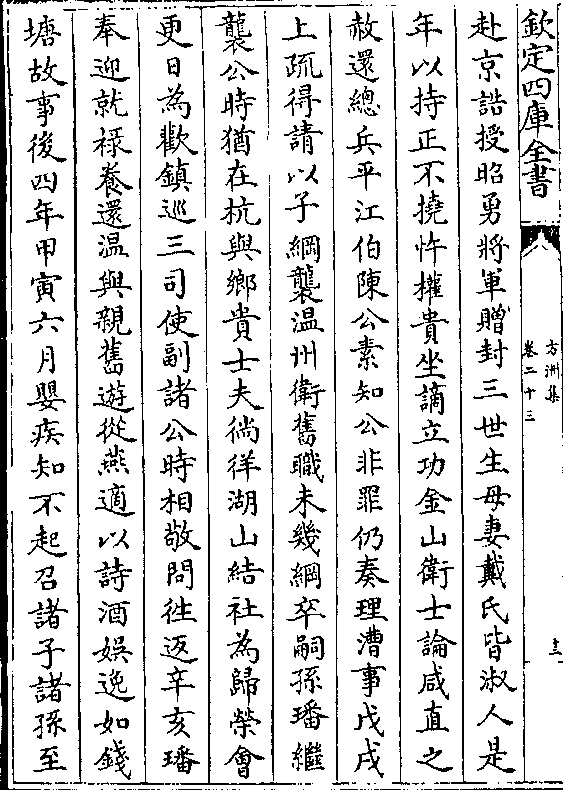 欽定四庫全書
方洲集
卷二十三
赴京誥授昭勇將軍贈封三世生母妻戴氏皆淑人是
年以持正不撓忤權貴坐謫立功金山衛士論咸直之
赦還總兵平江伯陳公素知公非罪仍奏理漕事戊戌
上疏得請以子綱襲温州衛舊職未幾綱卒嗣孫璠繼
襲公時猶在杭與鄉貴士夫徜徉湖山結社為歸榮會
更日為歡鎮巡三司使副諸公時相敬問徃返辛亥璠
奉迎就禄養還温與親舊遊從燕適以詩酒娱逸如錢
塘故事後四年甲寅六月嬰疾知不起召諸子諸孫至